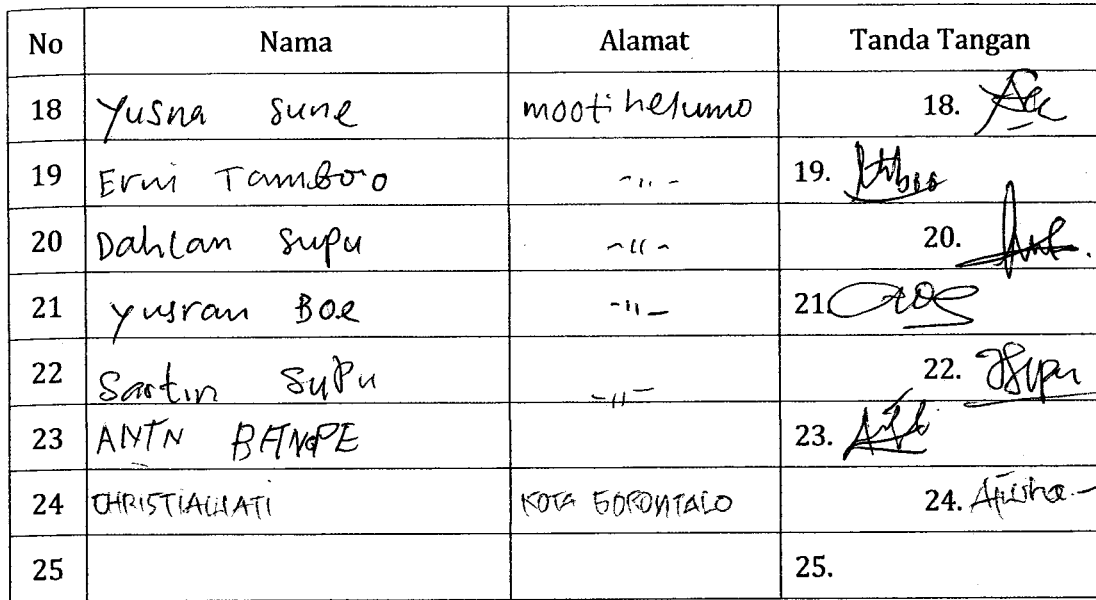 No Nama Alamat Tanda Tangan
18 Yusna Sune mootihelumo 18.
19 Erni Tamboo -"- 19.
20 Dahlan Supu -"- 20.
21 Yusran Boe -"- 21.
22 Sartin Supu -"- 22.
23 ANTN 23.
24 CHRISTIAWATI KOTA GORONTALO 24.
25 25.